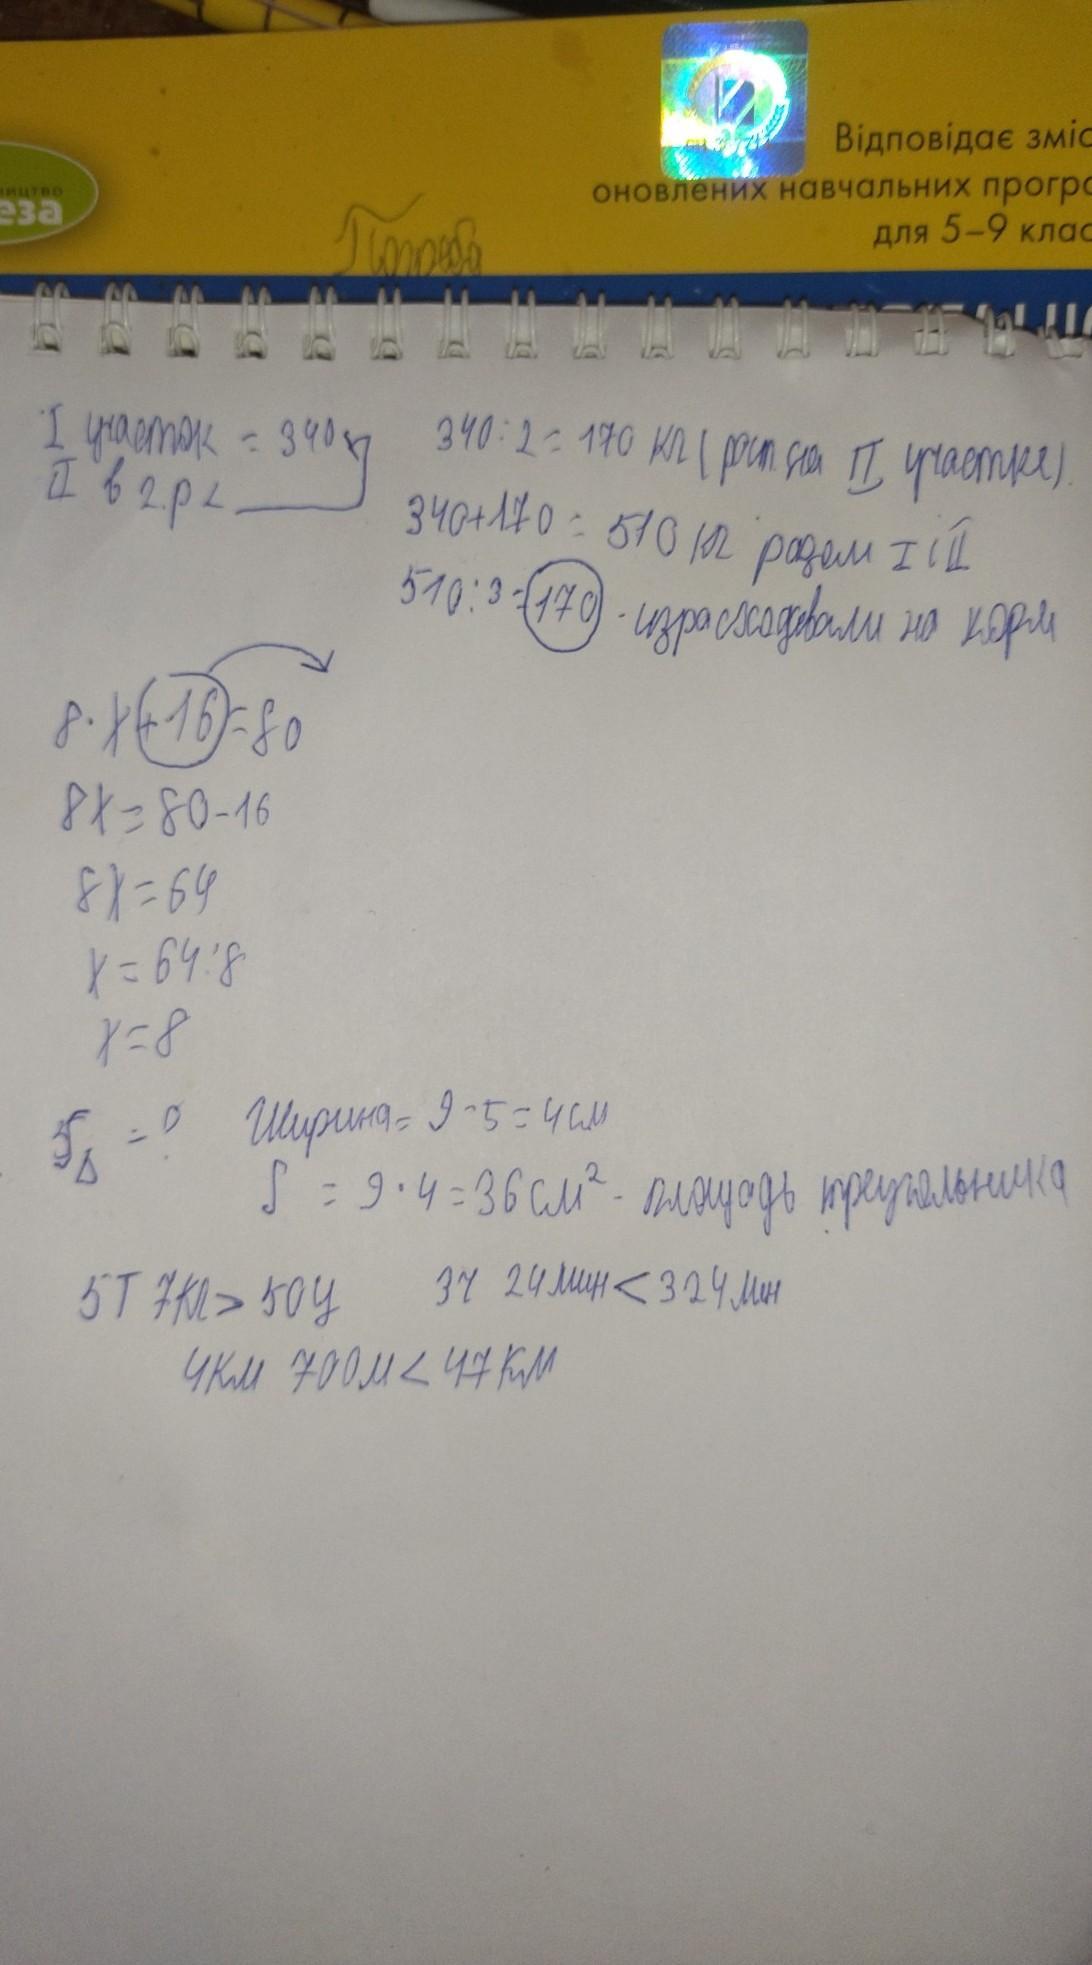 Відповідає зміс
оновлених навчальних програ
для 5–9 клас
ництво
еза
I участок = 340
II в 2.р <
340:2=170 кг (рост. на II участке).
340+170=510 кг разом I i II
510:3=170 - израсходовали на корм
8·X+16=80
8X=80-16
8X=64
X=64:8
X=8
S△ = ? Ширина= 9-5=4см
S = 9·4=36см² - площадь треугольника
5т 7кг > 50ц 3ч 24мин < 324мин
4км 700м < 47км